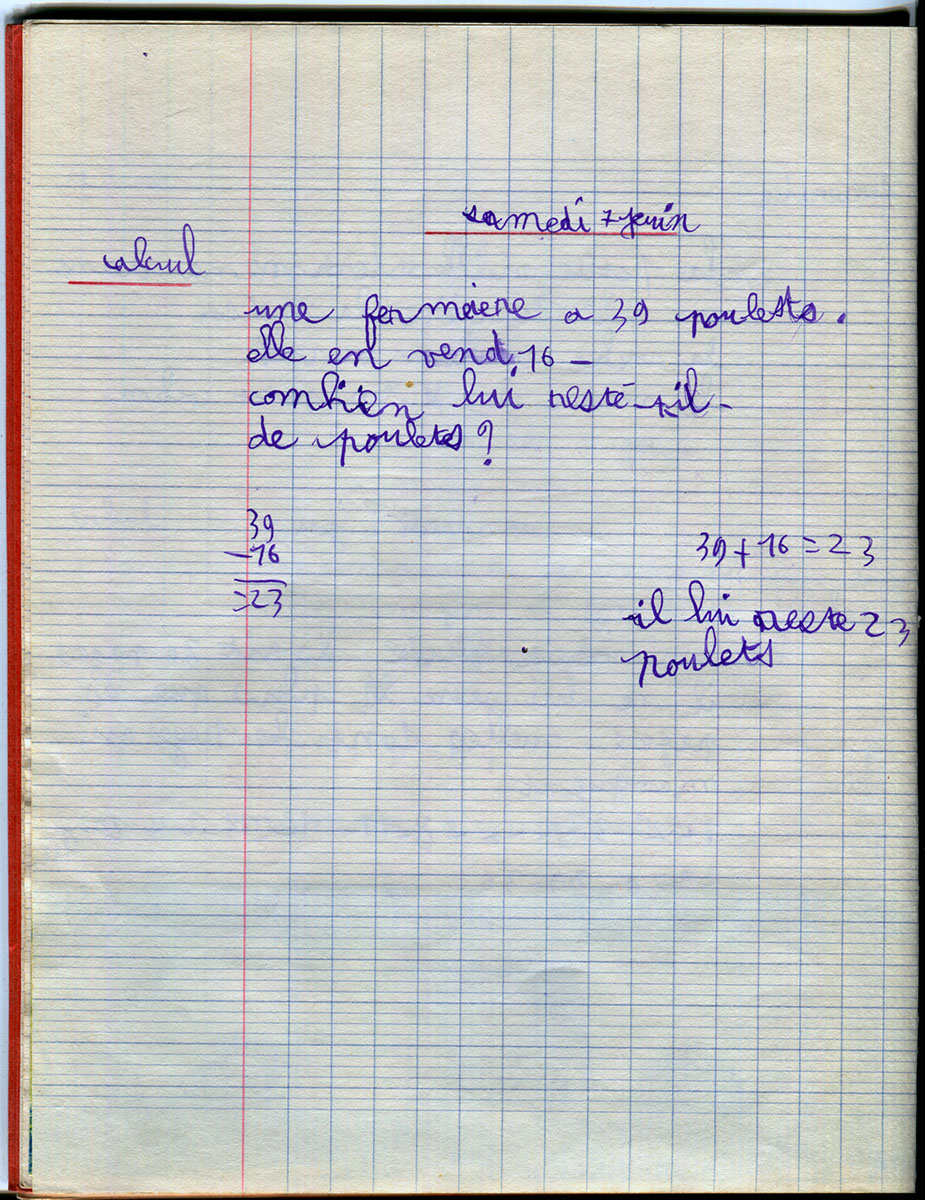 samedi 7 juin
calcul
une fermeiere a 39 poulests.
elle en vend.16 -
combien lui reste-t-il-
de poulets?
39
-16
=23
39+16=23
il lui reste 23
poulets